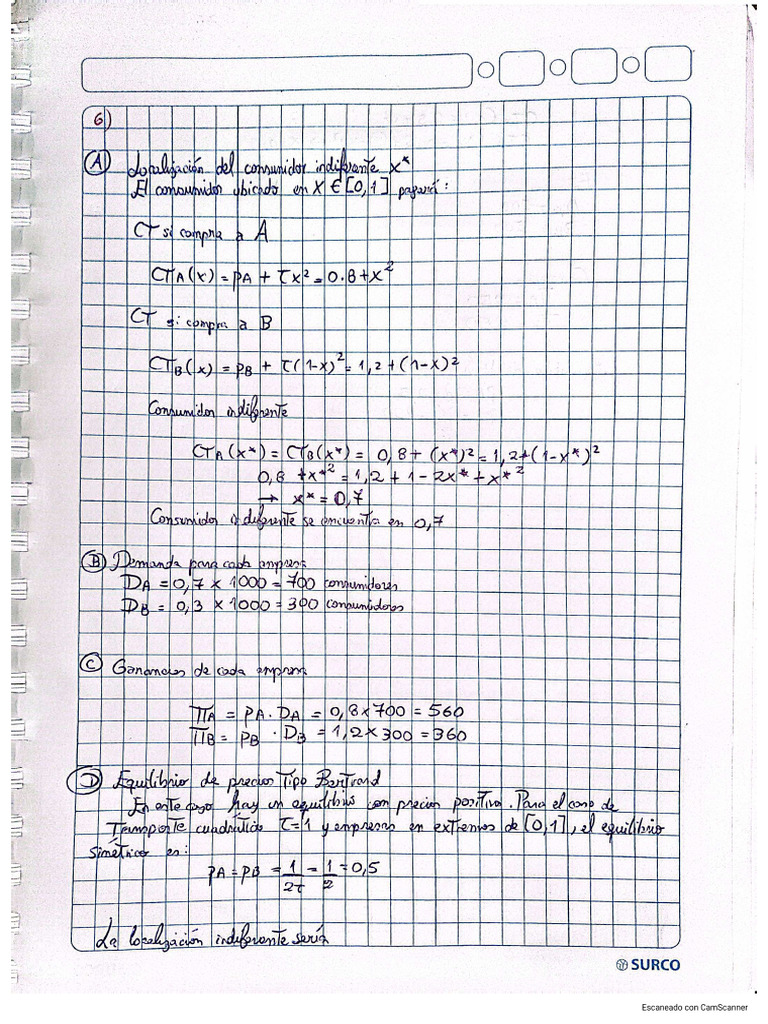 6)
A Localización del consumidor indiferente x*
El consumidor ubicado en X ∈ [0,1] pagará:
CT si compra a A
CTA(x) = pA + τx² = 0.8+x²
CT si compra a B
CTB(x) = pB + τ(1-x)² = 1,2 + (1-x)²
Consumidor indiferente
CTA(x*) = CTB(x*) = 0,8 + (x*)² = 1,2+(1-x*)²
0,8 + x*² = 1,2 + 1 - 2x* + x*²
→ x* = 0,7
Consumidor indiferente se encuentra en 0,7
B Demanda para cada empresa
DA = 0,7 x 1000 = 700 consumidores
DB = 0,3 x 1000 = 300 consumidores
C Ganancias de cada empresa
πA = pA · DA = 0,8x700 = 560
πB = pB · DB = 1,2x300 = 360
D Equilibrio de precios Tipo Bertrand
En este caso hay un equilibrio con precios positivo. Para el caso de
Transporte cuadrático τ=1 y empresas en extremos de [0,1], el equilibrio
simétrico es:
pA = pB = 1/2τ = 1/2 = 0,5
La localización indiferente sería
SURCO
Escaneado con CamScanner